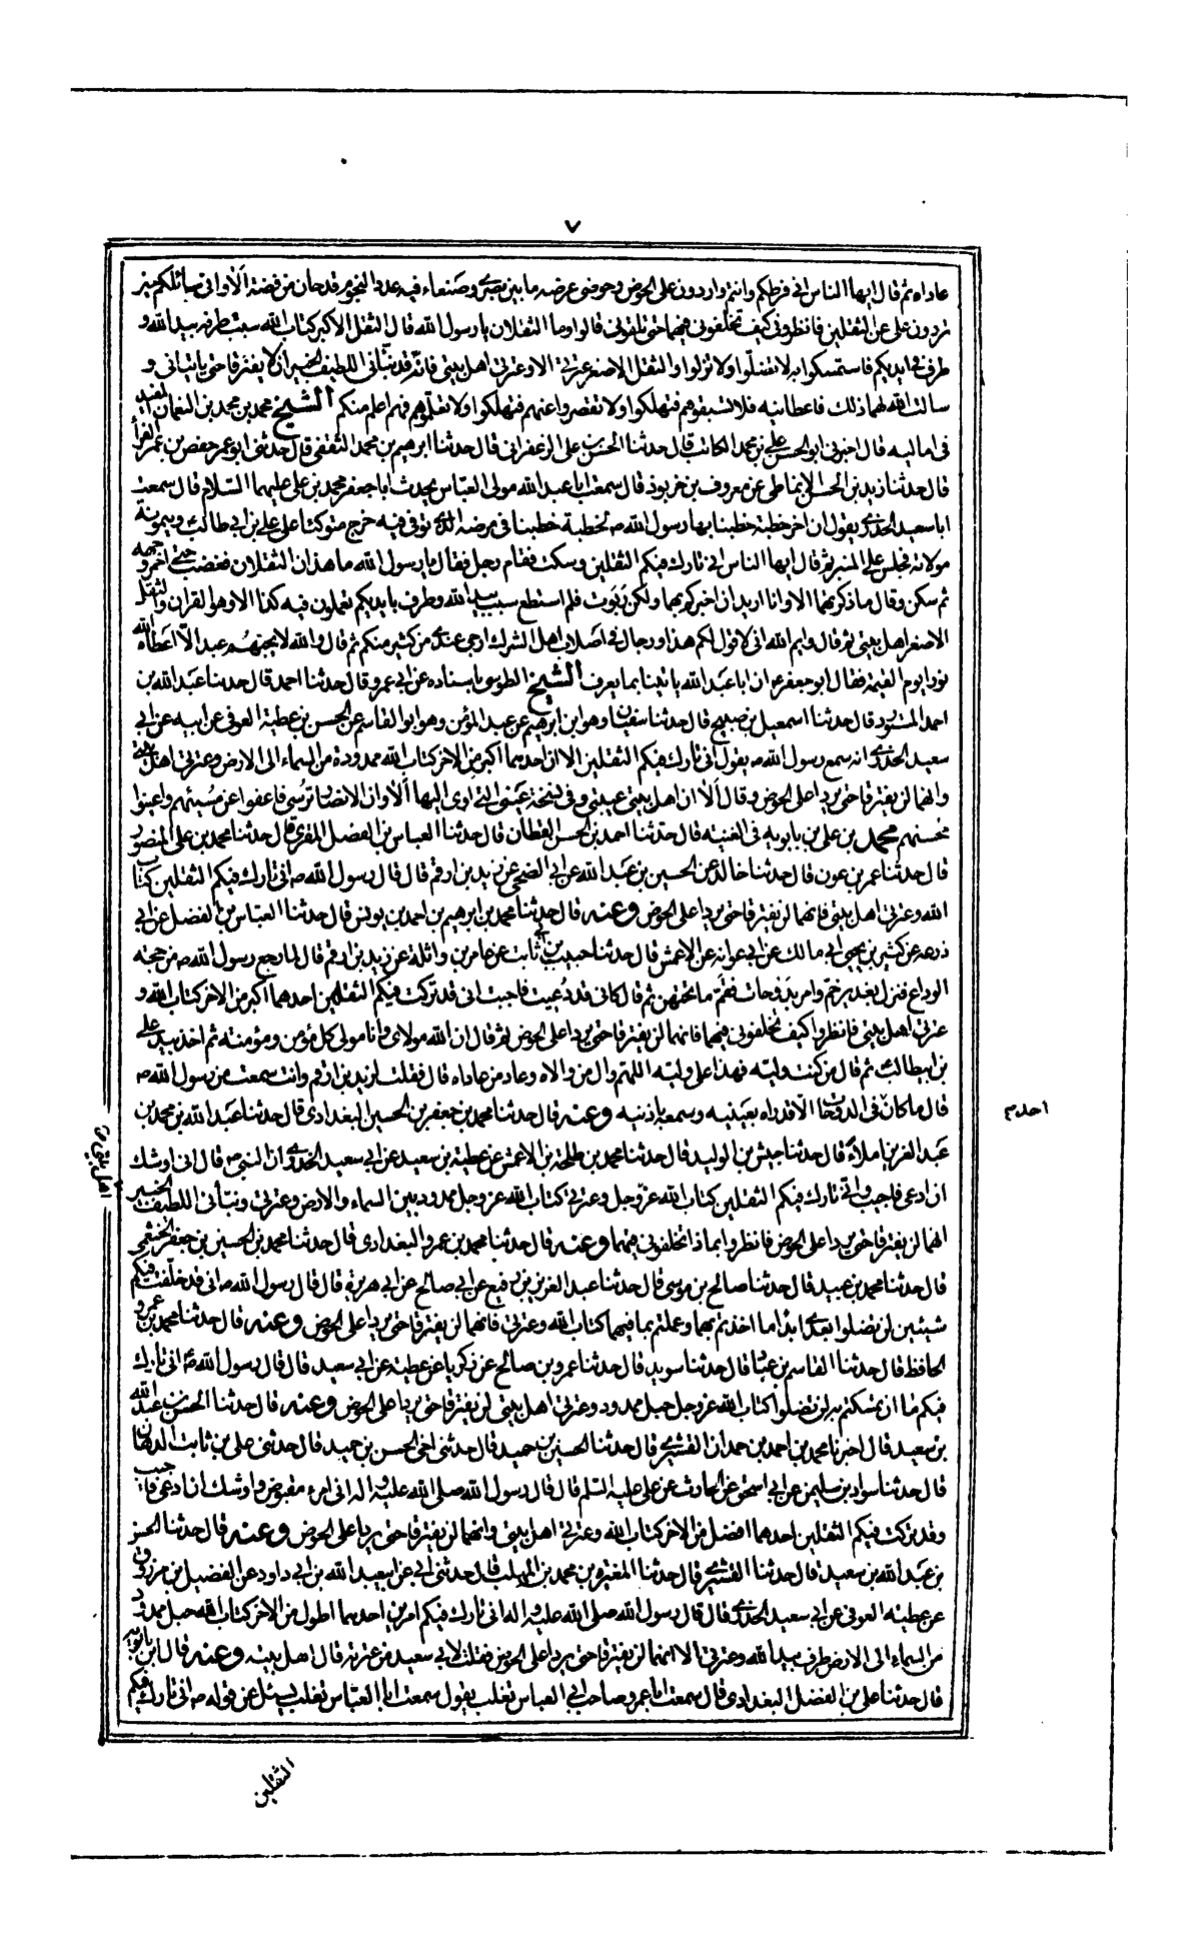 ٧
عاداه ثم قال ايها الناس انى فرطكم وانتم واردون على الحوض وحوضى عرضه ما بين بصرى وصنعاء فيه عدد النجوم قدحان من فضة الا وانى سائلكم حين
تردون على عن الثقلين فانظرونى كيف تخلفونى فيهما حتى تلقونى قالوا وما الثقلان يا رسول الله قال الثقل الاكبر كتاب الله سبب طرفه بيد الله و
طرف فى ايديكم فاستمسكوا به لا تضلوا ولا تزلوا والثقل الاصغر عترتى الا وعترتى اهل بيتى فانه قد نبأنى اللطيف الخبير ان لا يفترقا حتى ياتيانى و
سالت الله لهما ذلك فاعطانيه فلا تسبقوهم فتهلكوا ولا تقصروا عنهم فتهلكوا ولا تعلموهم فهم اعلم منكم الشيخ محمد بن محمد بن النعمان المفيد
فى اماليه قال اخبرنى ابو الحسن على بن محمد الكاتب قال حدثنا الحسن بن على الزعفرانى قال حدثنا ابرهيم بن محمد الثقفى قال حدثنى ابو عمر حفص بن عمر الفرا
قال حدثنا زيد بن الحسن الانماطى عن معروف بن خربوذ قال سمعت ابا عبد الله مولى العباس يحدث ابا جعفر محمد بن على عليهما السلام قال سمعت
ابا سعيد الخدرى يقول ان اخر خطبة خطبنا بها رسول الله ص لخطبة خطبنا فى مرضه الذى توفى فيه خرج متوكئا على على بن ابى طالب وميمونة
مولاته فجلس على المنبر ثم قال ايها الناس انى تارك فيكم الثقلين وسكت فقام رجل فقال يا رسول الله ما هذان الثقلان فغضب حتى احمر وجهه
ثم سكن وقال ما ذكرتهما الا وانا اريد ان اخبركم بهما ولكن ربوت فلم استطع سبب بيد الله وطرف بايديكم تعملون فيه كذا الا وهو القران والثقل
الاصغر اهل بيتى ثم قال وايم الله انى لاقول لكم هذا ورجال فى اصلاب اهل الشرك ارجى عندى من كثير منكم ثم قال والله لا يحبهم عبد الا اعطاه الله
نورا يوم القيمة فقال ابو جعفر ع ان ابا عبد الله ياتينا بما يعرف الشيخ الطوسى باسناده عن ابى عمرو قال حدثنا احمد قال حدثنا عبد الله بن
احمد المستورد قال حدثنا اسمعيل بن صبيح قال حدثنا سفيان وهو ابن ابرهيم عن عبد المؤمن وهو ابو القاسم عن الحسن بن عطية العوفى عن ابيه عن ابى
سعيد الخدرى انه سمع رسول الله ص يقول انى تارك فيكم الثقلين الا ان احدهما اكبر من الاخر كتاب الله ممدودة من السماء الى الارض وعترتى اهل بيتى
وانهما لن يفترقا حتى يردا على الحوض وقال الا ان اهل بيتى عيبتى التى اوى اليها الا وان الانصار ترسى فاعفوا عن مسيئهم واعينوا
محسنهم محمد بن على بن بابويه فى الغيبة قال حدثنا احمد بن الحسن القطان قال حدثنا العباس بن الفضل المقرى قال حدثنا محمد بن على المنصور
قال حدثنا عمر بن عون قال حدثنا خالد عن الحسين بن عبد الله عن ابى الضحى عن زيد بن ارقم قال قال رسول الله ص انى تارك فيكم الثقلين كتاب
الله وعترتى اهل بيتى فانهما لن يفترقا حتى يردا على الحوض وعنه قال حدثنا محمد بن ابرهيم بن احمد بن يونس قال حدثنا العباس بن الفضل عن ابى
ذرعه عن كثير بن يحيى ابى مالك عن ابى عوانه عن الاعمش قال حدثنا حبيب بن ابى ثابت عن عامر بن واثلة عن زيد بن ارقم قال لما رجع رسول الله ص من حجة
الوداع فنزل بغدير خم وامر بدوحات فقم ما تحتهن ثم قال كانى قد دعيت فاجبت انى قد تركت فيكم الثقلين احدهما اكبر من الاخر كتاب الله و
عترتى اهل بيتى فانظروا كيف تخلفونى فيهما فانهما لن يفترقا حتى يردا على الحوض ثم قال ان الله مولاى وانا مولى كل مؤمن ومؤمنة ثم اخذ بيد على
بن ابيطالب ثم قال من كنت وليه فهذا على وليه اللهم وال من والاه وعاد من عاداه قال فقلت لزيد بن ارقم وانت سمعت من رسول الله ص
قال ما كان فى الدوحات الا قد راه بعينيه وسمعه باذنيه وعنه قال حدثنا محمد بن جعفر بن الحسين البغدادى قال حدثنا عبد الله بن محمد بن
احدم
عبد العزيز املاء قال حدثنا بن الوليد قال حدثنا محمد بن طلحة بن الاعمش عن عطية بن سعيد عن ابى سعيد الخدرى ان النبى ص قال انى اوشك
ان ادعى فاجيب وانى تارك فيكم الثقلين كتاب الله عز وجل وعترتى كتاب الله عز وجل ممدود بين السماء والارض وعترتى ونبأنى اللطيف الخبير
انهما لن يفترقا حتى يردا على الحوض فانظروا بماذا تخلفونى فيهما وعنه قال حدثنا محمد بن عمرو البغدادى قال حدثنا محمد بن الحسين بن جعفر الخثعمى
قال حدثنا محمد بن عبيد قال حدثنا صالح بن موسى قال حدثنا عبد العزيز بن رفيع عن ابى صالح عن ابى هريرة قال قال رسول الله ص انى قد خلفت فيكم
شيئين لن تضلوا بعدى ابدا ما اخذتم بهما وعملتم بما فيهما كتاب الله وعترتى فانهما لن يفترقا حتى يردا على الحوض وعنه قال حدثنا محمد بن عمرو
الحافظ قال حدثنا القاسم بن عباد قال حدثنا سويد قال حدثنا عمرو بن صالح عن زكريا عن عطية عن ابى سعيد قال قال رسول الله ص انى تارك
فيكم ما ان تمسكتم به لن تضلوا كتاب الله عز وجل حبل ممدود وعترتى اهل بيتى لن يفترقا حتى يردا على الحوض وعنه قال حدثنا الحسن بن عبد الله
بن سعيد قال اخبرنا محمد بن احمد بن حمدان القشيرى قال حدثنا الحسين بن حميد قال حدثنى اخى الحسن بن حميد قال حدثنى على بن ثابت الدهان
قال حدثنا سواد بن سليمن عن ابى اسحق عن الحارث عن على عليه السلم قال قال رسول الله صلى الله عليه واله انى امرء مقبوض واوشك ان ادعى فاجيب
وقد تركت فيكم الثقلين احدهما افضل من الاخر كتاب الله وعترتى اهل بيتى وانهما لن يفترقا حتى يردا على الحوض وعنه قال حدثنا الحسن
بن عبد الله بن سعيد قال حدثنا القشيرى قال حدثنا المغيره بن محمد بن المهلب قال حدثنى ابى عن عبد الله بن ابى داود عن الفضيل بن مرزوق
عن عطية العوفى عن ابى سعيد الخدرى قال قال رسول الله صلى الله عليه واله انى تارك فيكم امرين احدهما اطول من الاخر كتاب الله حبل ممدود
من السماء الى الارض طرف بيد الله وعترتى الا انهما لن يفترقا حتى يردا على الحوض فقلت لابى سعيد من عترته قال اهل بيته وعنه قال ابن بابويه
قال حدثنا على بن الفضل البغدادى قال سمعت ابا عمرو صاحب ابى العباس تغلب يقول سمعت ابا العباس تغلب يسئل عن قوله ص انى تارك فيكم
الثقلين